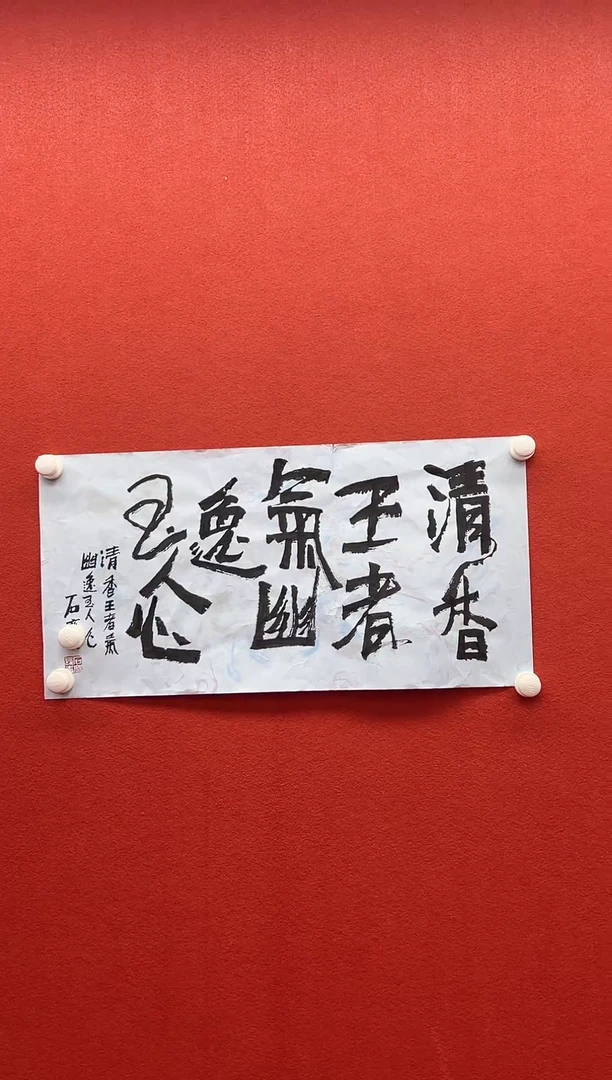 清香
王者
氣幽
逸
玉人心
清香王者氣
幽逸玉人心
石